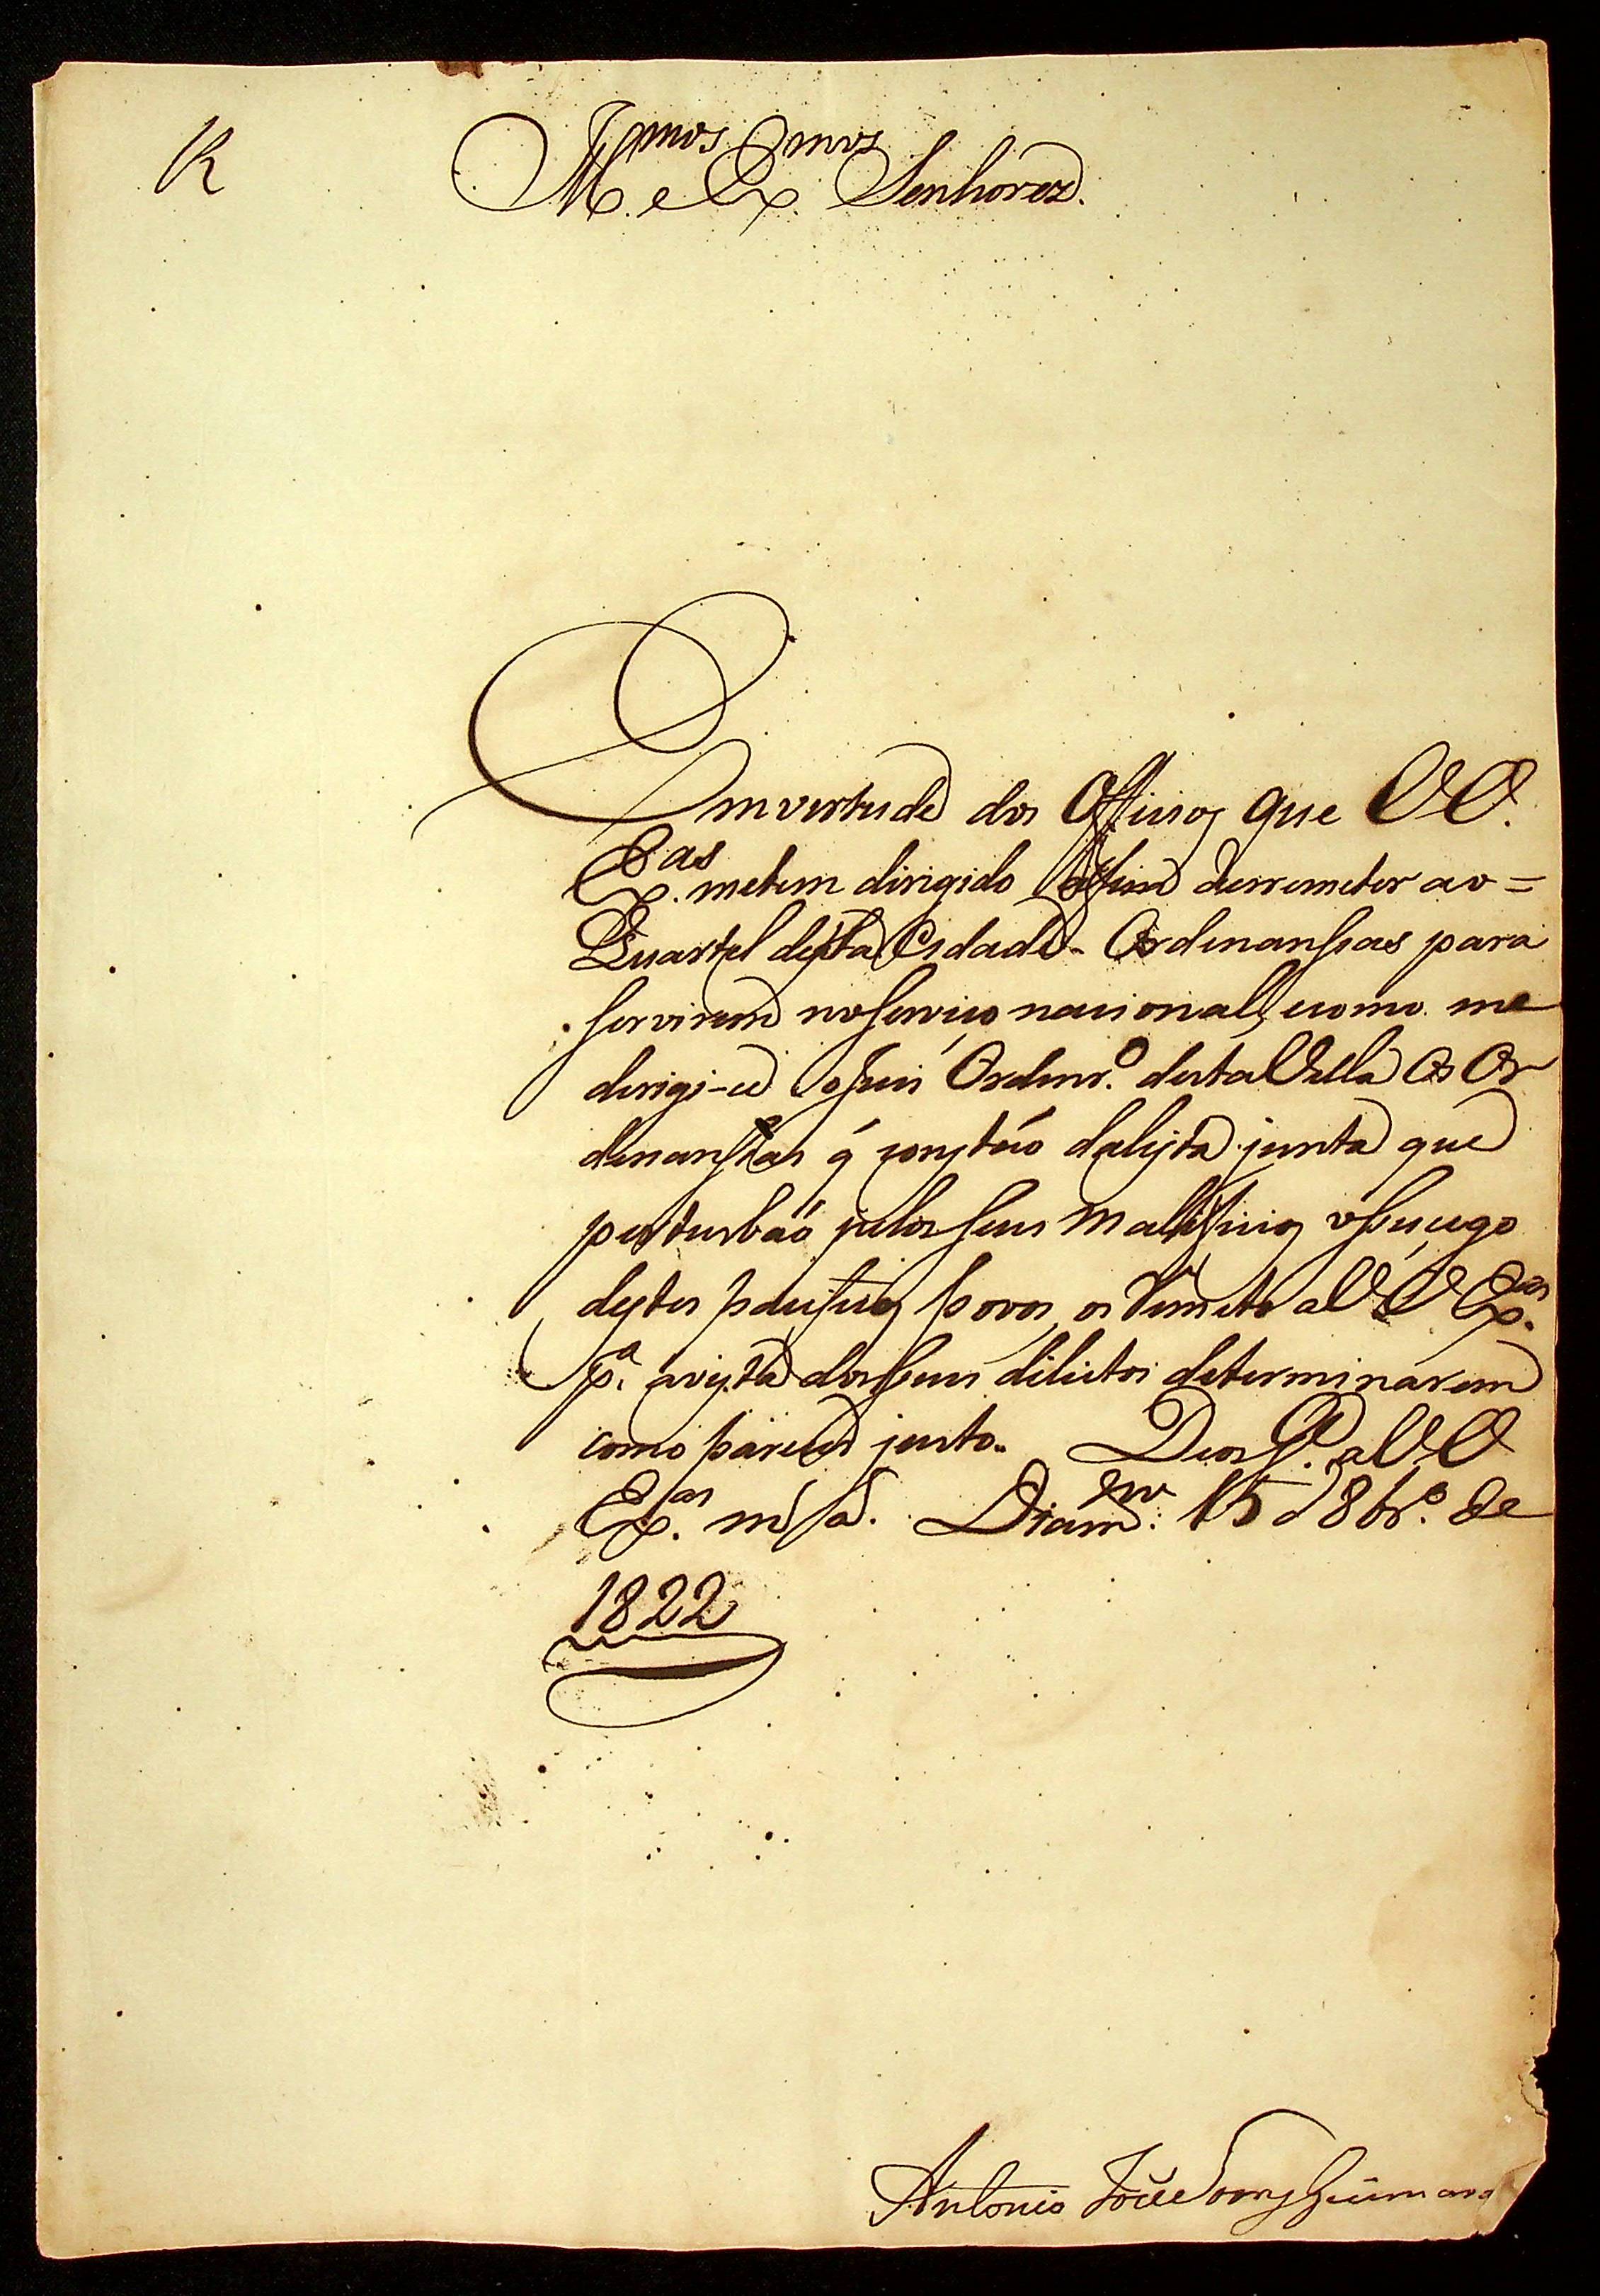 R
Illmos. e Exmos. Senhores.
Em vertude dos Officios que VV.
Exas. metem dirigido afim deremeter ao=
Quartel desta Cidade - Ordenansas para
servirem noserviço nacional, ecomo me
derigi-ce oseu Ordenro. destaVella Os Or
denansas q constão dalista junta que
perturbaõ pelos seus maleficios osucego
destes pacificos povos, os Remeto aVV Exas.
pa. avista dosseus dilictos determinarem
como parecer justo. Deos G. aVV
Exas. ms as. Diamno. 15 d 8bro. de
1822
Antonio José Guimaraes